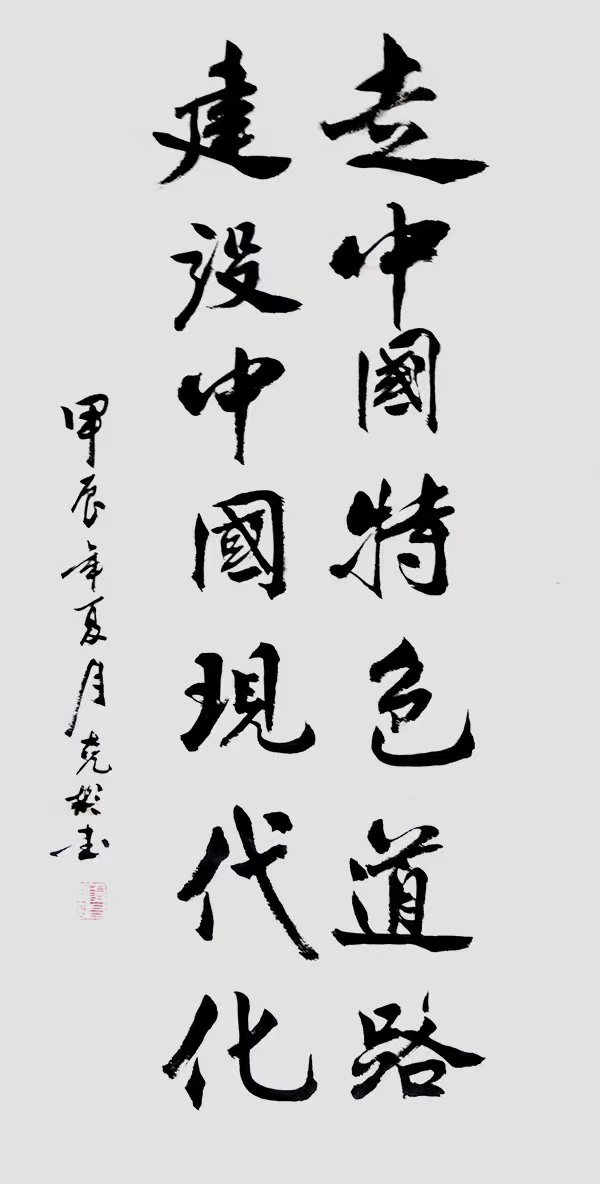 走中國特色道路
建設中國現代化
甲辰年夏月克彬书